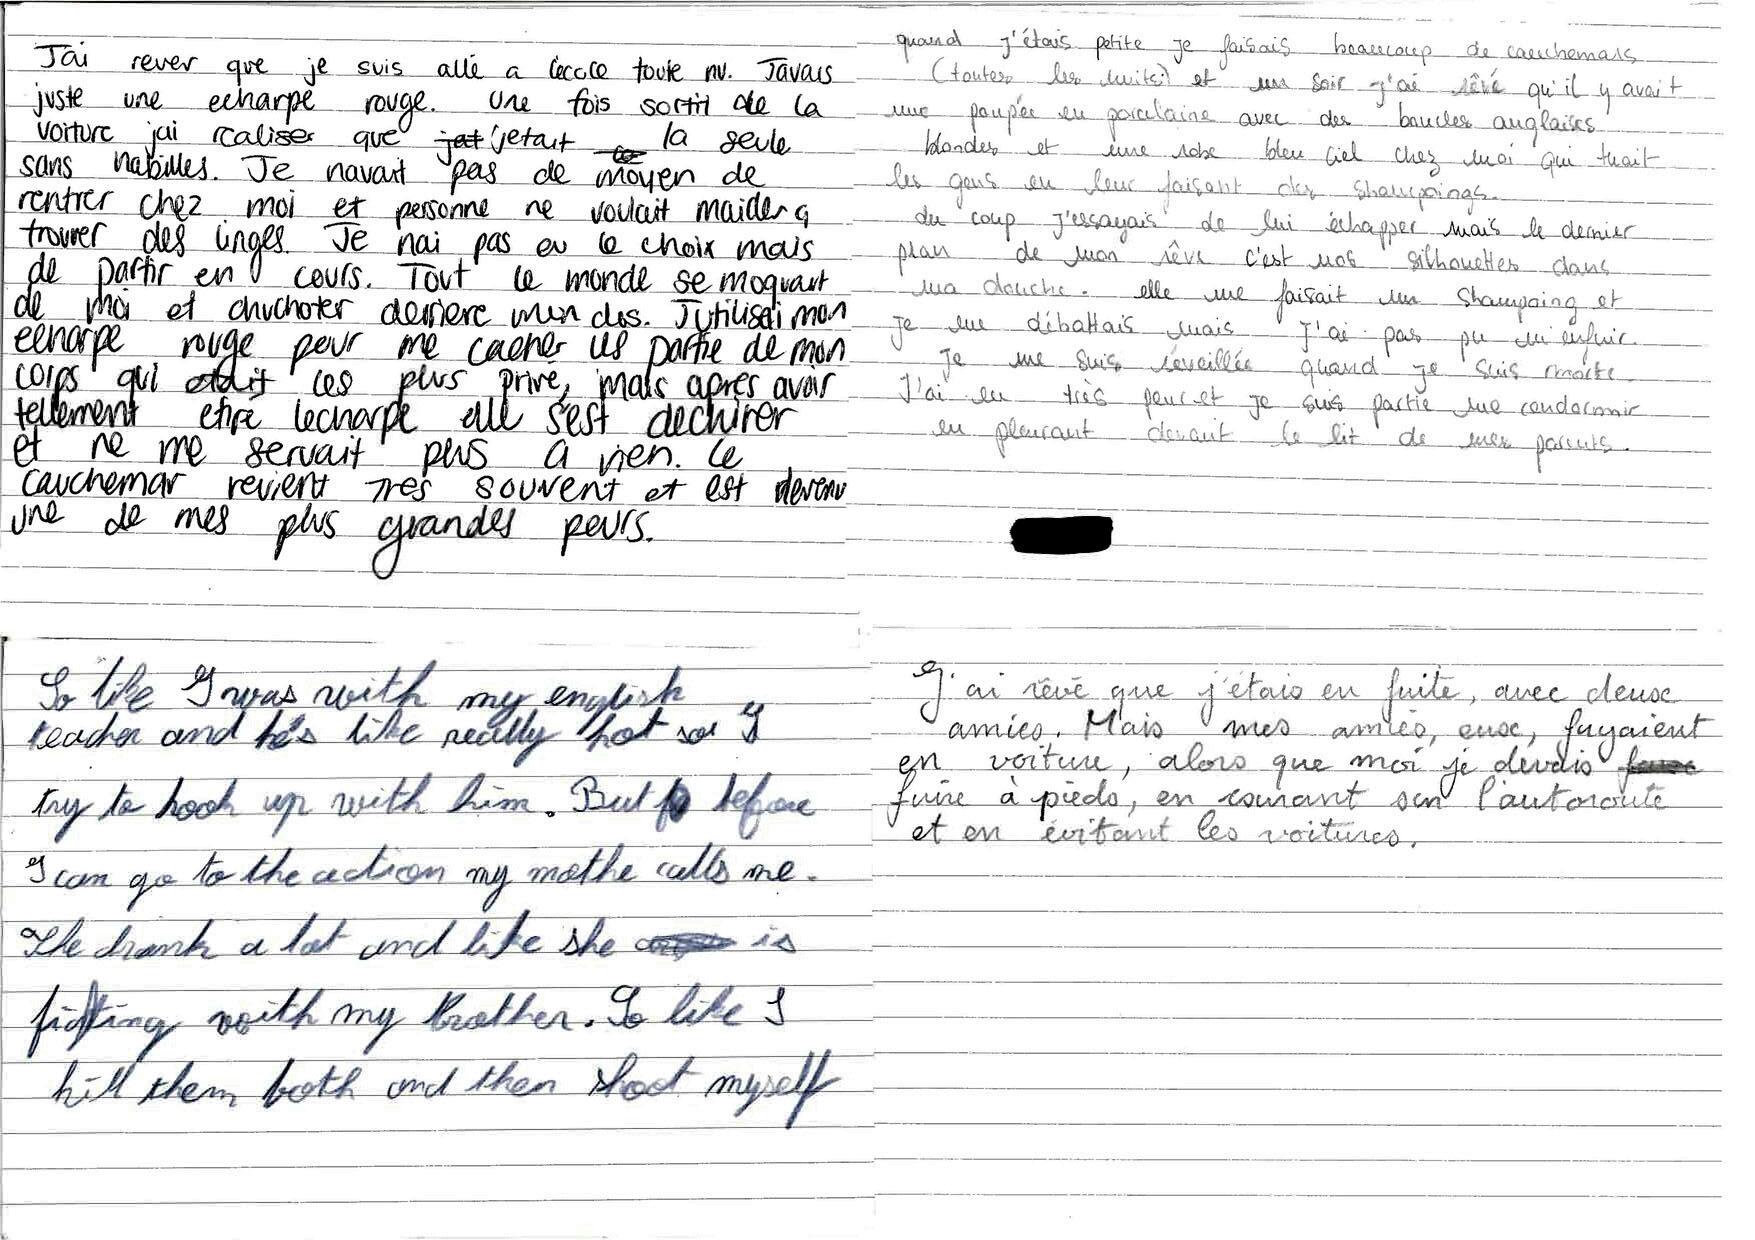 J'ai rever que je suis allé a l'eccole toute nu. J'avais
juste une echarpe rouge. Une fois sortit de la
voiture jai realiser que j'etait la seule
sans habilles. Je navait pas de moyen de
rentrer chez moi et personne ne voulait maider a
trouver des linges. Je nai pas eu le choix mais
de partir en cours. Tout le monde se moquait
de moi et chuchoter derriere mon dos. J'utilisai mon
echarpe rouge pour me cacher les partie de mon
corps qui etait les plus privé, mais apres avoir
tellement etire lecharpe elle s'est dechirer
et ne me servait plus a rien. Le
cauchemar revient tres souvent et est devenu
une de mes plus grandes peurs.
quand j'étais petite je faisais beaucoup de cauchemars
(toutes les nuits) et un soir j'ai rêvé qu'il y avait
une poupée en porcelaine avec des boucles anglaises
blondes et une robe bleu ciel chez moi qui tuait
les gens en leur faisant des shampoings.
du coup j'essayais de lui échapper mais le dernier
plan de mon rêve c'est nos silhouettes dans
ma douche. elle me faisait un shampoing et
je me débattais mais j'ai pas pu m'enfuir.
je me suis réveillée quand je suis morte.
J'ai eu très peur et je suis partie me rendormir
en pleurant devant le lit de mes parents.
So like I was with my english
teacher and he's like really hot so I
try to hook up with him. But before
I can go to the action my mothe calls me.
She drank a lot and like she is
fighting with my brother. So like I
kill them both and then shoot myself
J'ai rêvé que j'étais en fuite, avec deux
amies. Mais mes amies, eux, fuyaient
en voiture, alors que moi je devais
fuire à pieds, en courant sur l'autoroute
et en évitant les voitures.